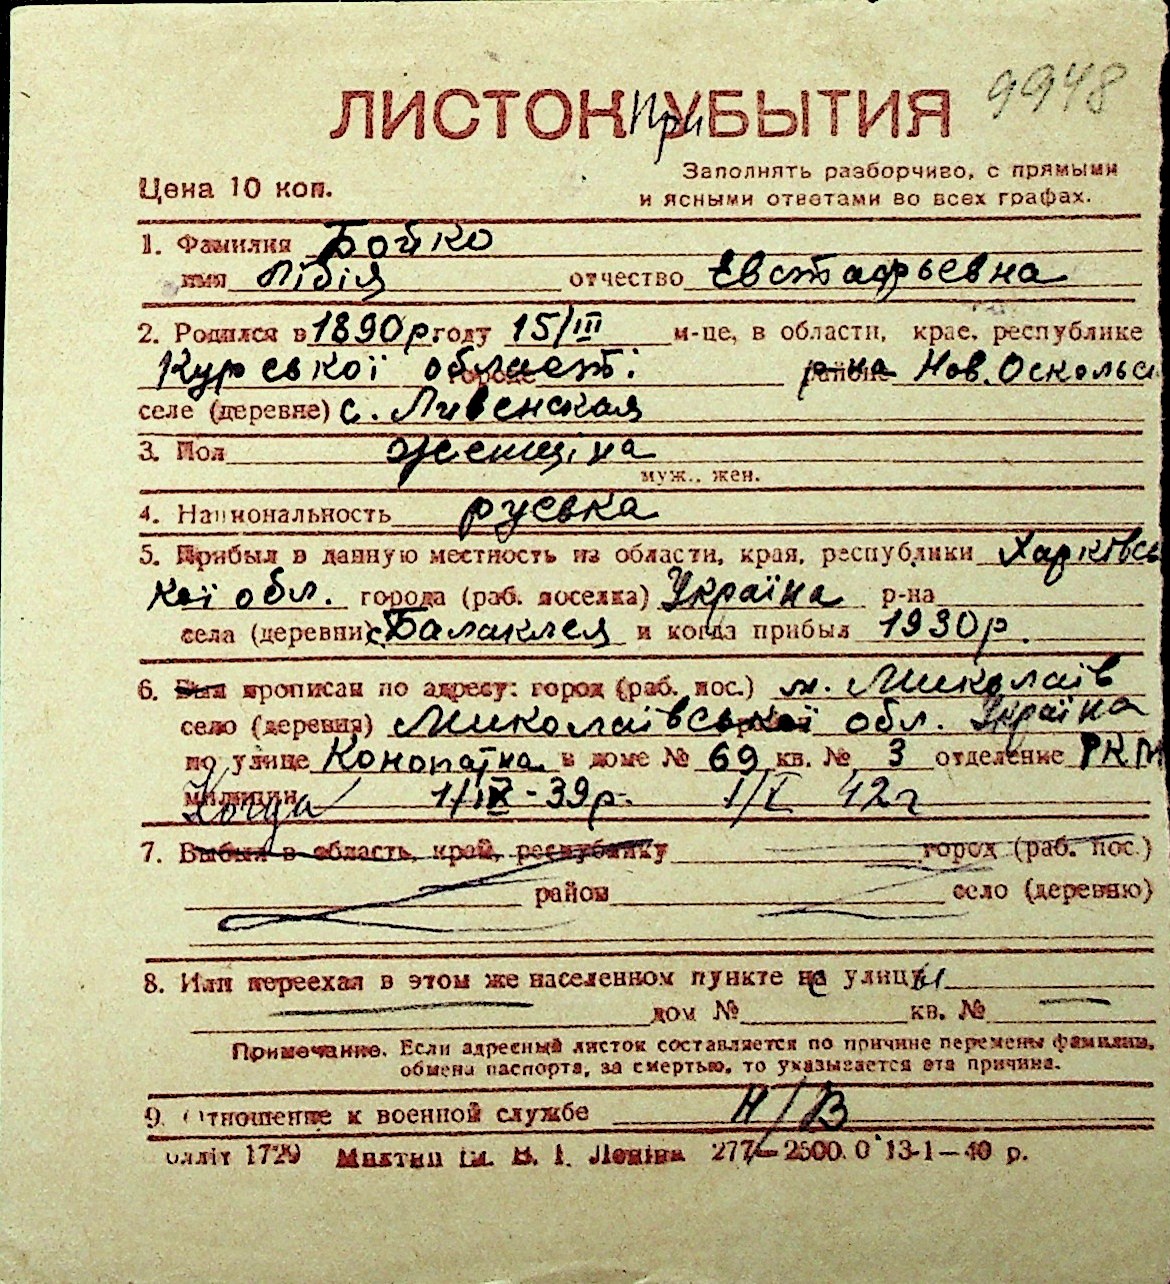 9948
ЛИСТОК при УБЫТИЯ
Цена 10 коп.
Заполнять разборчиво, с прямыми
и ясными ответами во всех графах.
1. Фамилия Бойко
имя Лідія отчество Евстафьевна
2. Родился в 1890 р году 15/III м-це, в области, крае, республике
Курської області городе районе р-на Нов. Оскольс
селе (деревне) с. Ливенская
3. Пол женщіна
муж., жен.
4. Национальность русвка
5. Прибыл в данную местность из области, края, республики Харківсь
кої обл. города (раб. поселка) Україна р-на
села (деревни) с. Балаклея и когда прибыл 1930 р.
6. Был прописан по адресу: город (раб. пос.) м. Миколаїв
село (деревня) Миколаївської обл. Україна
по улице Конопатна в доме № 69 кв. № 3 отделение РКМ
милиции Когда 1/IX - 39 р. 1/I 42 г
7. Выбыл в область, край, республику город (раб. пос.)
район село (деревню)
8. Или переехал в этом же населенном пункте на улицу
дом № кв. №
Примечание. Если адресный листок составляется по причине перемены фамилии,
обмена паспорта, за смертью, то указывается эта причина.
9. Отношение к военной службе Н/В
облліт 1729 Миктип ім. В. І. Леніна 277—2500. 0 13-1—40 р.